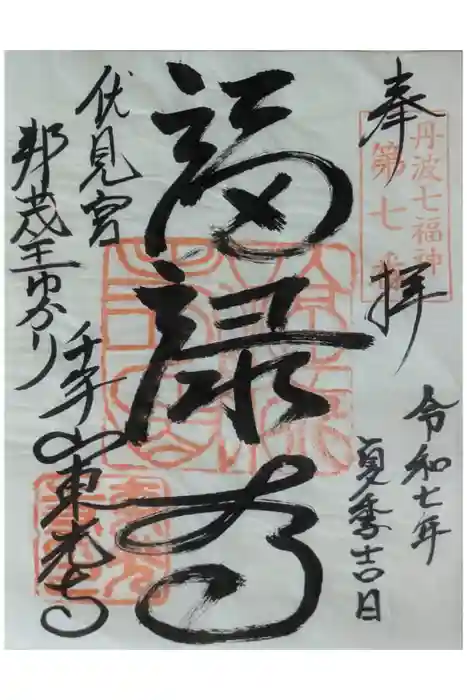 奉拝
丹波七福神
第七番
令和七年
夏季吉日
福禄寿
伏見宮
邦茂王ゆかり
千手山東光寺